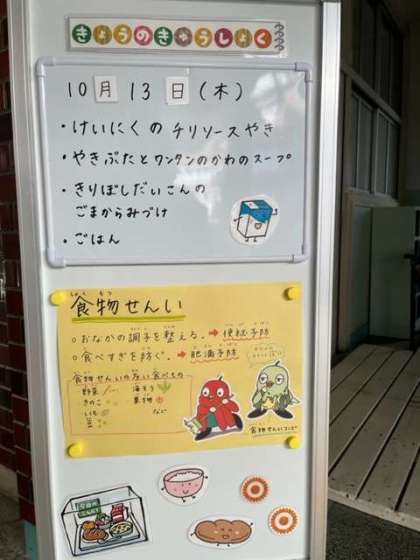 きょうのきゅうしょく
10月13日(木)
・けいにくのチリソースやき
・やきぶたとワンタンのかわのスープ
・きりぼしだいこんの
ごまからみづけ
・ごはん
食物せんい
○おなかの調子を整える。→便秘予防
○食べすぎを防ぐ。→肥満予防
食物せんいの多い食べもの
野菜 海そう
きのこ 果物
いも など
豆
食物せんいコンビ